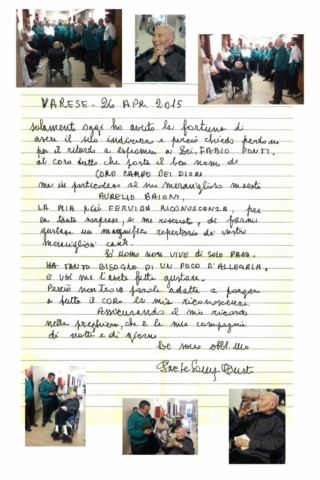 VARESE - 26 APR. 2015
solamente oggi ho avuto la fortuna di
avere il suo indirizzo e perciò chiedo perdono
per il ritardo a esprimere a Lei, FABIO PONTI,
al coro tutto che porta il bel nome di
CORO CAMPO DEI FIORI
ma in particolare al suo meraviglioso maestro
AURELIO BAIONI,
LA MIA PIÙ FERVIDA RICONOSCENZA, per
la tanta sorpresa, a me riservata, di farmi
gustare un magnifico repertorio dei vostri
meravigliosi canti.
L'uomo non VIVE di SOLO PANE.
HA TANTO BISOGNO DI UN POCO D'ALLEGRIA,
e voi me l'avete fatta gustare.
Perciò non trovo parole adatte a porgere
a tutto il CORO la mia riconoscenza
Assicurando il mio ricordo
nella preghiera, che è la mia compagnia
di notte e di giorno.